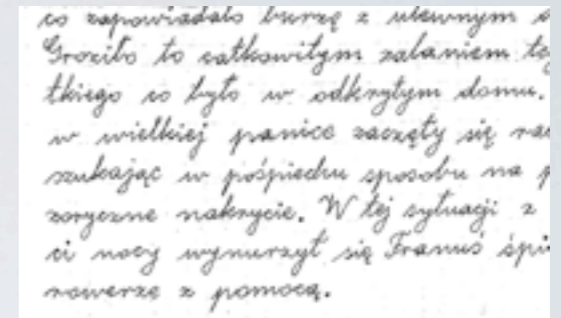 co zapowiadało burzę z ulewnym
Groziło to całkowitym zalaniem te
tkiego co było w odkrytym domu.
w wielkiej panice zaczęły się na
szukając w pośpiechu sposobu na p
zoryczne nakrycie. W tej sytuacji z
ci nocy wynurzył się Franuś śpi
rowerze z pomocą.